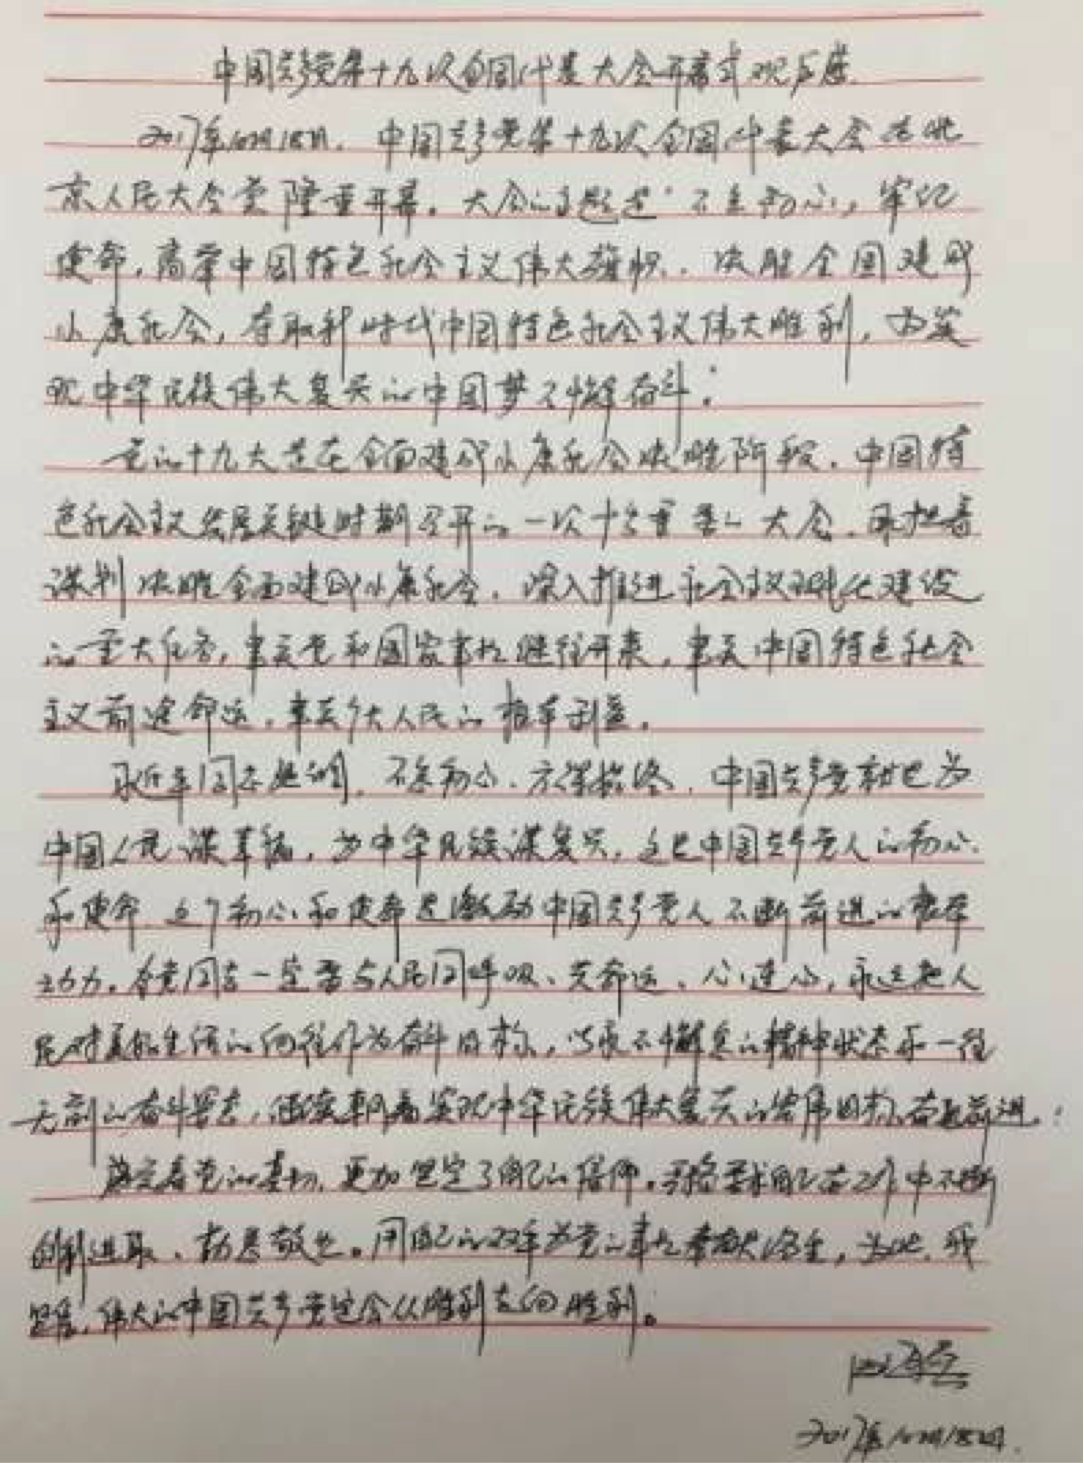 中国共产党第十九次全国代表大会开幕式观后感
2017年10月18日，中国共产党第十九次全国代表大会在北
京人民大会堂隆重开幕。大会的主题是：不忘初心，牢记
使命，高举中国特色社会主义伟大旗帜，决胜全国建成
小康社会，夺取新时代中国特色社会主义伟大胜利，为实
现中华民族伟大复兴的中国梦不懈奋斗。
党的十九大是在全面建成小康社会决胜阶段、中国特
色社会主义发展关键时期召开的一次十分重要的大会，承担着
谋划决胜全面建成小康社会，深入推进社会主义现代化建设
的重大任务，事关党和国家事业继往开来，事关中国特色社会
主义前途命运，事关广大人民的根本利益。
习近平同志提到，不忘初心，方得始终，中国共产党就是为
中国人民谋幸福，为中华民族谋复兴，这是中国共产党人的初心
和使命，这个初心和使命是激励中国共产党人不断前进的根本
动力。全党同志一定要与人民同呼吸、共命运、心连心，永远把人
民对美好生活的向往作为奋斗目标，以永不懈怠的精神状态和一往
无前的奋斗姿态，继续朝着实现中华民族伟大复兴的宏伟目标奋勇前进。
更加坚定了自己的信仰。严格要求自己在工作中不断
创新进取、勤恳敬业。用自己的双手为党的事业奉献终生，为此，我
坚信，伟大的中国共产党定会从胜利走向胜利。
2017年10月18日